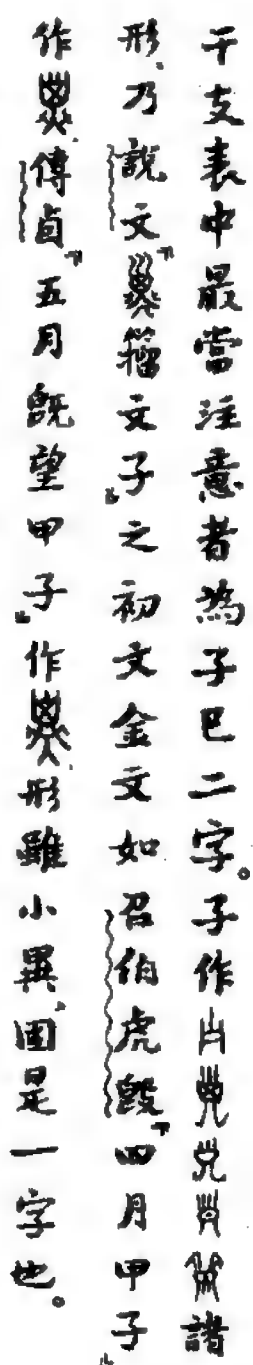 干支表中最當注意者為子巳二字。子作諸
形、乃說文「籀文子」之初文金文如召伯虎𣪘「四月甲子」
作、傳卣「五月既望甲子」作、形雖小異、固是一字也。